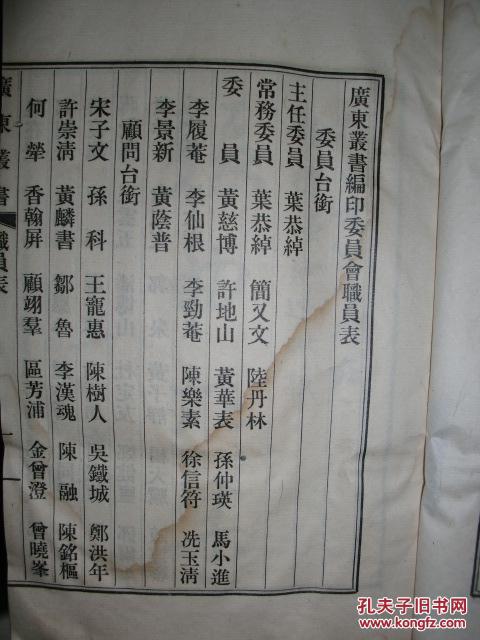 廣東叢書編印委員會職員表
委員台銜
主任委員 葉恭綽
常務委員 葉恭綽 簡又文 陸丹林
委員 黃慈博 許地山 黃華表 孫仲瑛 馬小進
李履菴 李仙根 李勁菴 陳樂素 徐信符 冼玉淸
李景新 黃蔭普
顧問台銜
宋子文 孫科 王寵惠 陳樹人 吳鐵城 鄭洪年
許崇淸 黃麟書 鄒魯 李漢魂 陳融 陳銘樞
何犖 香翰屏 顧翊羣 區芳浦 金曾澄 曾曉峯
廣東叢書 職員表 一
孔夫子旧书网
www.kongfz.com